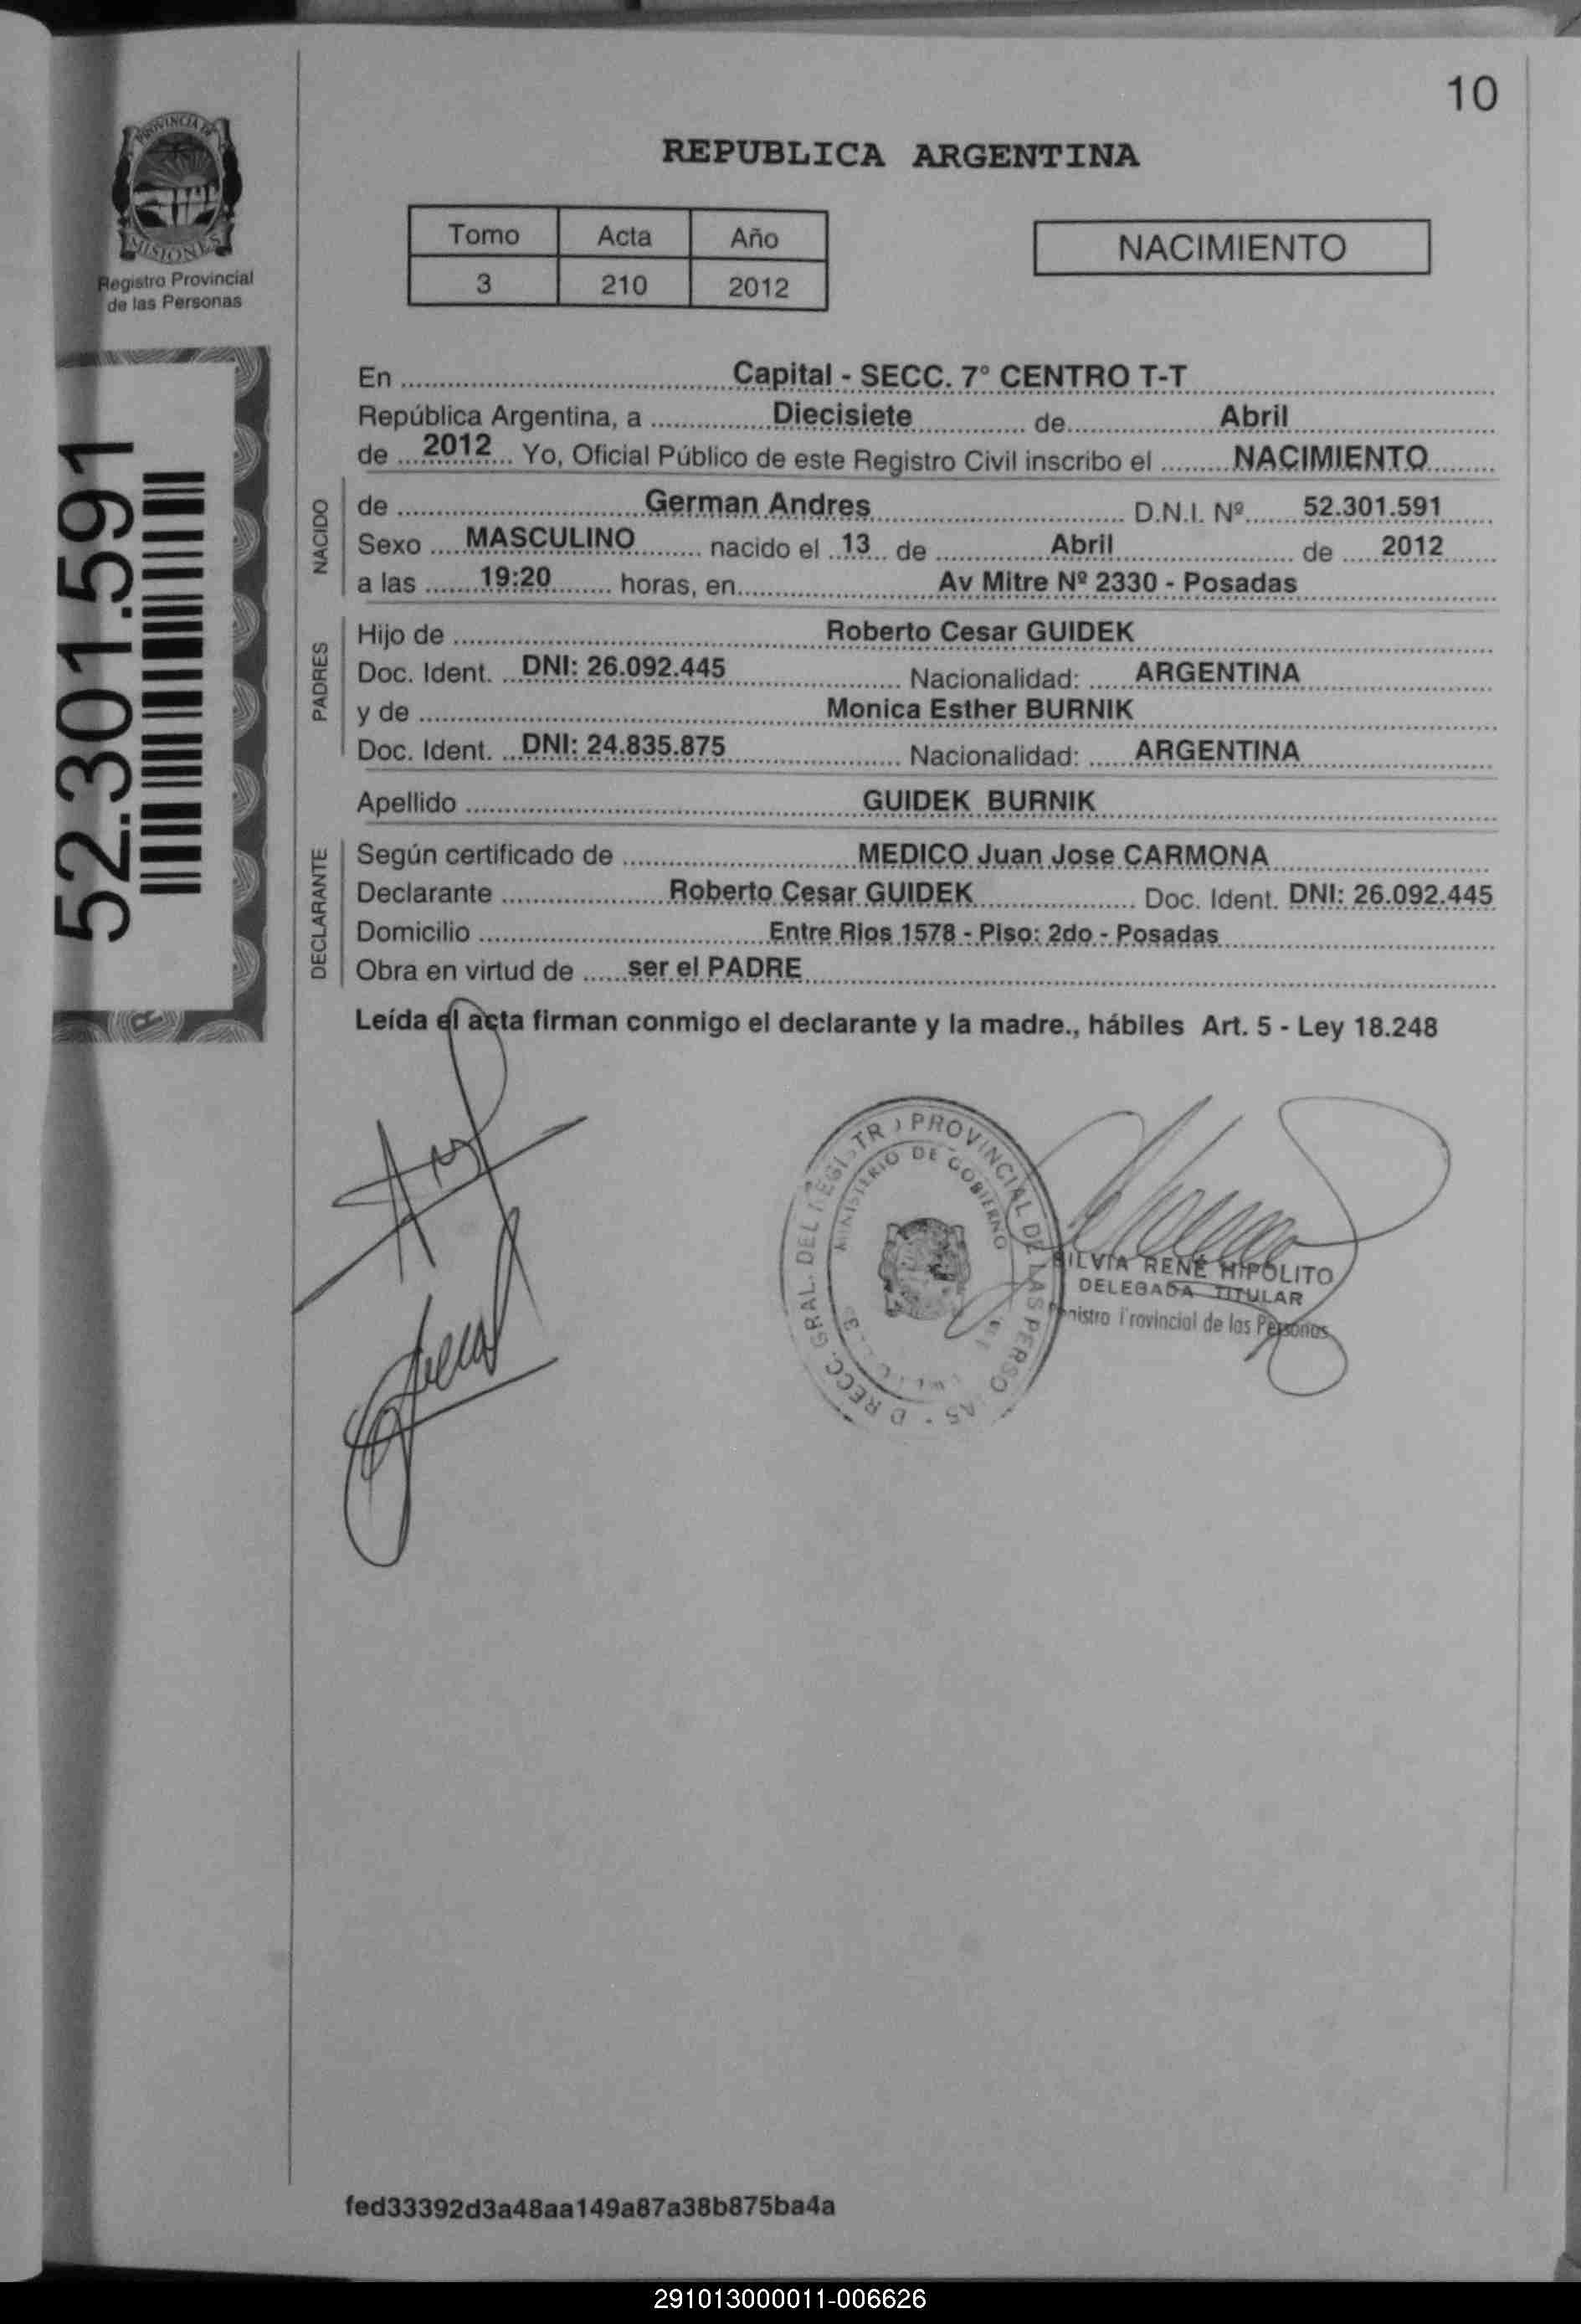 10
PROVINCIA DE
MISIONES
Registro Provincial
de las Personas
REPUBLICA ARGENTINA
Tomo Acta Año
3 210 2012
NACIMIENTO
52.301.591
En Capital - SECC. 7° CENTRO T-T
República Argentina, a Diecisiete de Abril
de 2012 Yo, Oficial Público de este Registro Civil inscribo el NACIMIENTO
NACIDO
de German Andres D.N.I. Nº 52.301.591
Sexo MASCULINO nacido el 13 de Abril de 2012
a las 19:20 horas, en Av Mitre Nº 2330 - Posadas
PADRES
Hijo de Roberto Cesar GUIDEK
Doc. Ident. DNI: 26.092.445 Nacionalidad: ARGENTINA
y de Monica Esther BURNIK
Doc. Ident. DNI: 24.835.875 Nacionalidad: ARGENTINA
Apellido GUIDEK BURNIK
DECLARANTE
Según certificado de MEDICO Juan Jose CARMONA
Declarante Roberto Cesar GUIDEK Doc. Ident. DNI: 26.092.445
Domicilio Entre Rios 1578 - Piso: 2do - Posadas
Obra en virtud de ser el PADRE
Leída el acta firman conmigo el declarante y la madre., hábiles Art. 5 - Ley 18.248
GRAL. DEL REGISTRO PROVINCIAL DE LAS
MINISTERIO DE GOBIERNO
SILVIA RENÉ HIPÓLITO
DELEGADA TITULAR
Provincial de las Personas
fed33392d3a48aa149a87a38b875ba4a
291013000011-006626